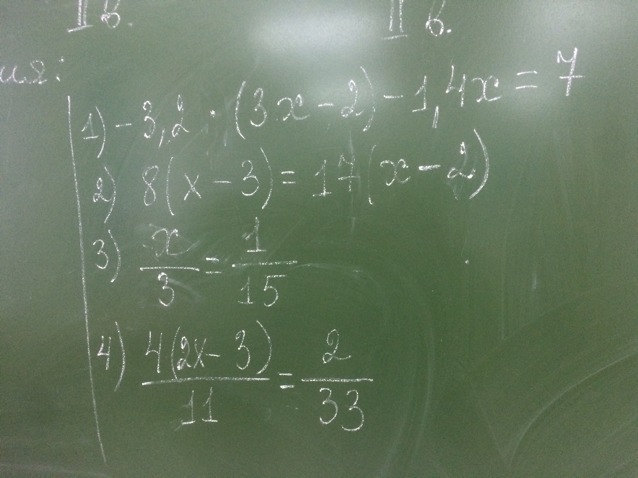 II в. II в.
ия:
1) -3,2 · (3x-2) - 1,4x = 7
2) 8(x-3) = 17(x-2)
3) x/3 = 1/15
4) 4(2x-3)/11 = 2/33